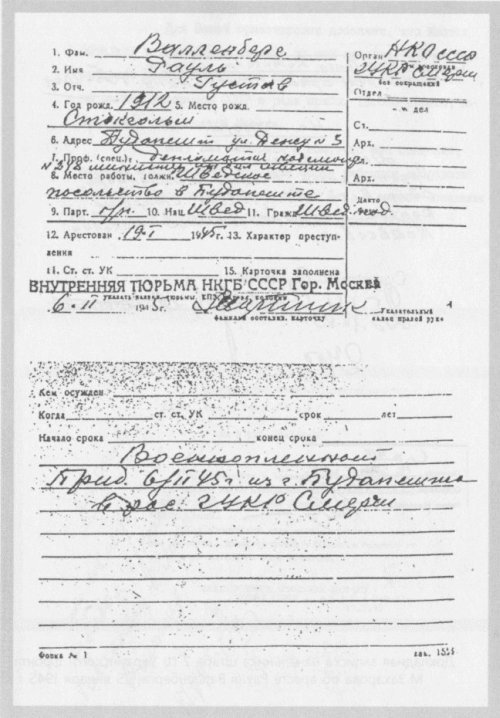 1. Фам. Валленберг
2. Имя Рауль
3. Отч. Густав
4. Год рожд. 1912 5. Место рожд.
Стокгольм
6. Адрес Будапешт ул.
7. Проф. (спец.)
8. Место работы, должн. Шведское
посольство в Будапеште
9. Парт. б/п. 10. Нац. Швед 11. Гражд. Швед. под.
12. Арестован 19-I 1945г. 13. Характер преступ-
ления
14. Ст. ст. УК 15. Карточка заполнена
ВНУТРЕННЯЯ ТЮРЬМА НКГБ СССР Гор. Москва
6-II 1945г.
фамилия составив. карточку
Указательный
палец правой руки
Орган НКО СССР
ГУКР Смерш
без сокращений
Отдел
" - " дел
Ст.
Арх.
Арх.
Кем осужден
Когда ст. ст. УК срок лет
Начало срока конец срока
Военнопленный
Приб. 6/II 45г из г. Будапешта
в рас. ГУКР Смерш
Форма № 1